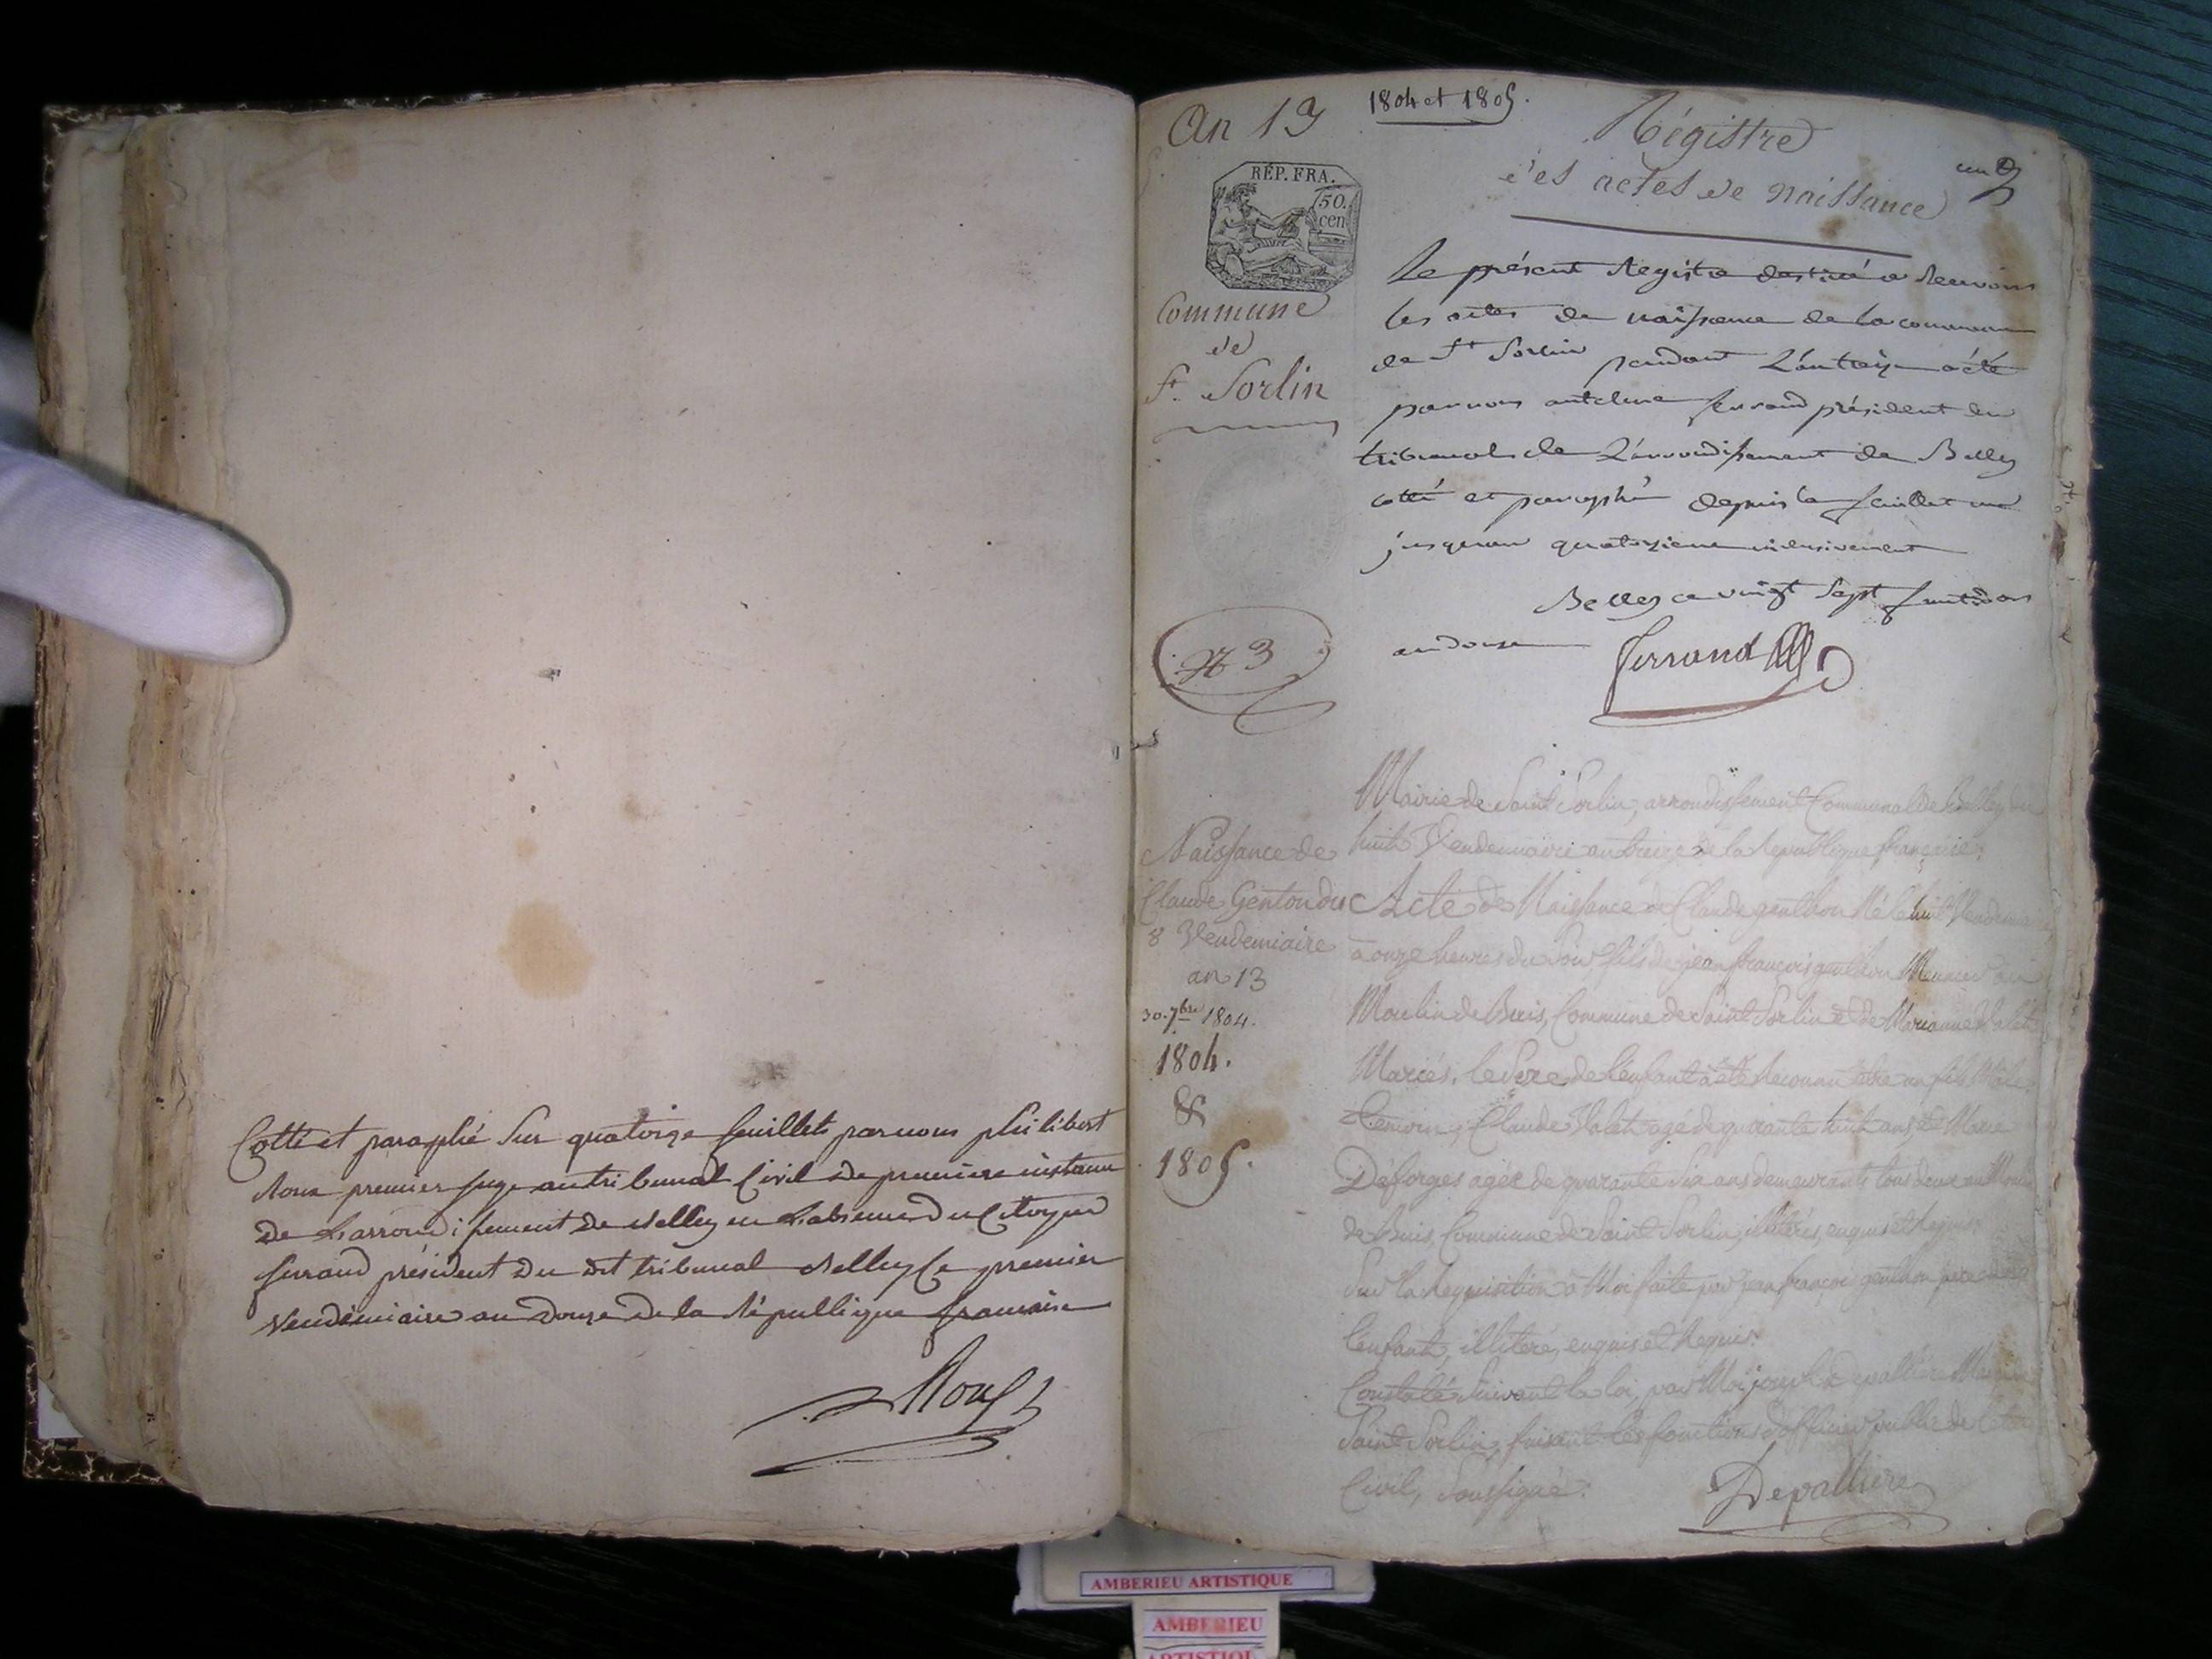 Cotté et paraphé sur quatorze feuillets par nous philibert
Roux premier juge au tribunal Civil de premiere instance
de L'arrondissement de Belley en L'absence du Citoyen
ferrand président du dit tribunal Belley le premier
vendémiaire an Douze de la République française
Roux
An 13
1804 et 1805.
Régistre
des actes de naissance
un
RÉP. FRA.
50.
cen
Commune
de
St. Sorlin
N 3
Le présent Registre destiné a Recevoir
les actes de naissance de la commune
de St Sorlin pendant L'an treize a été
par nous antelme ferrand président du
tribunal de L'arrondissement de Belley
cotté et paraphé depuis le feuillet un
jusqu'au quatorzieme inclusivement
Belley ce vingt sept fructidor
an douze
Ferrand
Naissance de
Claude Genton du
8 Vendemiaire
an 13
30. 7bre 1804.
1804.
&
1805.
Mairie de Saint Sorlin, arrondissement Communal de Belley du
huit Vendemiaire an treize de la Republique française.
Acte de Naissance de Claude genthon Né le huit Vendemiaire
à onze heures du soir, fils de jean françois genthon Meunier au
Moulin de Buis, Commune de Saint Sorlin et de Marianne Valet
Mariés. le Sexe de l'enfant à été Reconnu être un fils Mâle.
Témoins, Claude Valet agé de quarante huit ans, et Marie
Déforges agée de quarante six ans demeurants tous deux au Moulin
de Buis, Commune de Saint Sorlin, illiterés, enquis et Requis.
Sur la Requisition à Moi faite par jean françois genthon pere de
l'enfant, illiteré, enquis et Requis.
Constaté suivant la loi, par Moi joseph Depalliere Maire de
Saint Sorlin, faisant les fonctions d'officier public de l'état
Civil, Soussigné.
Depalliere
AMBERIEU ARTISTIQUE
AMBERIEU
ARTISTIQUE